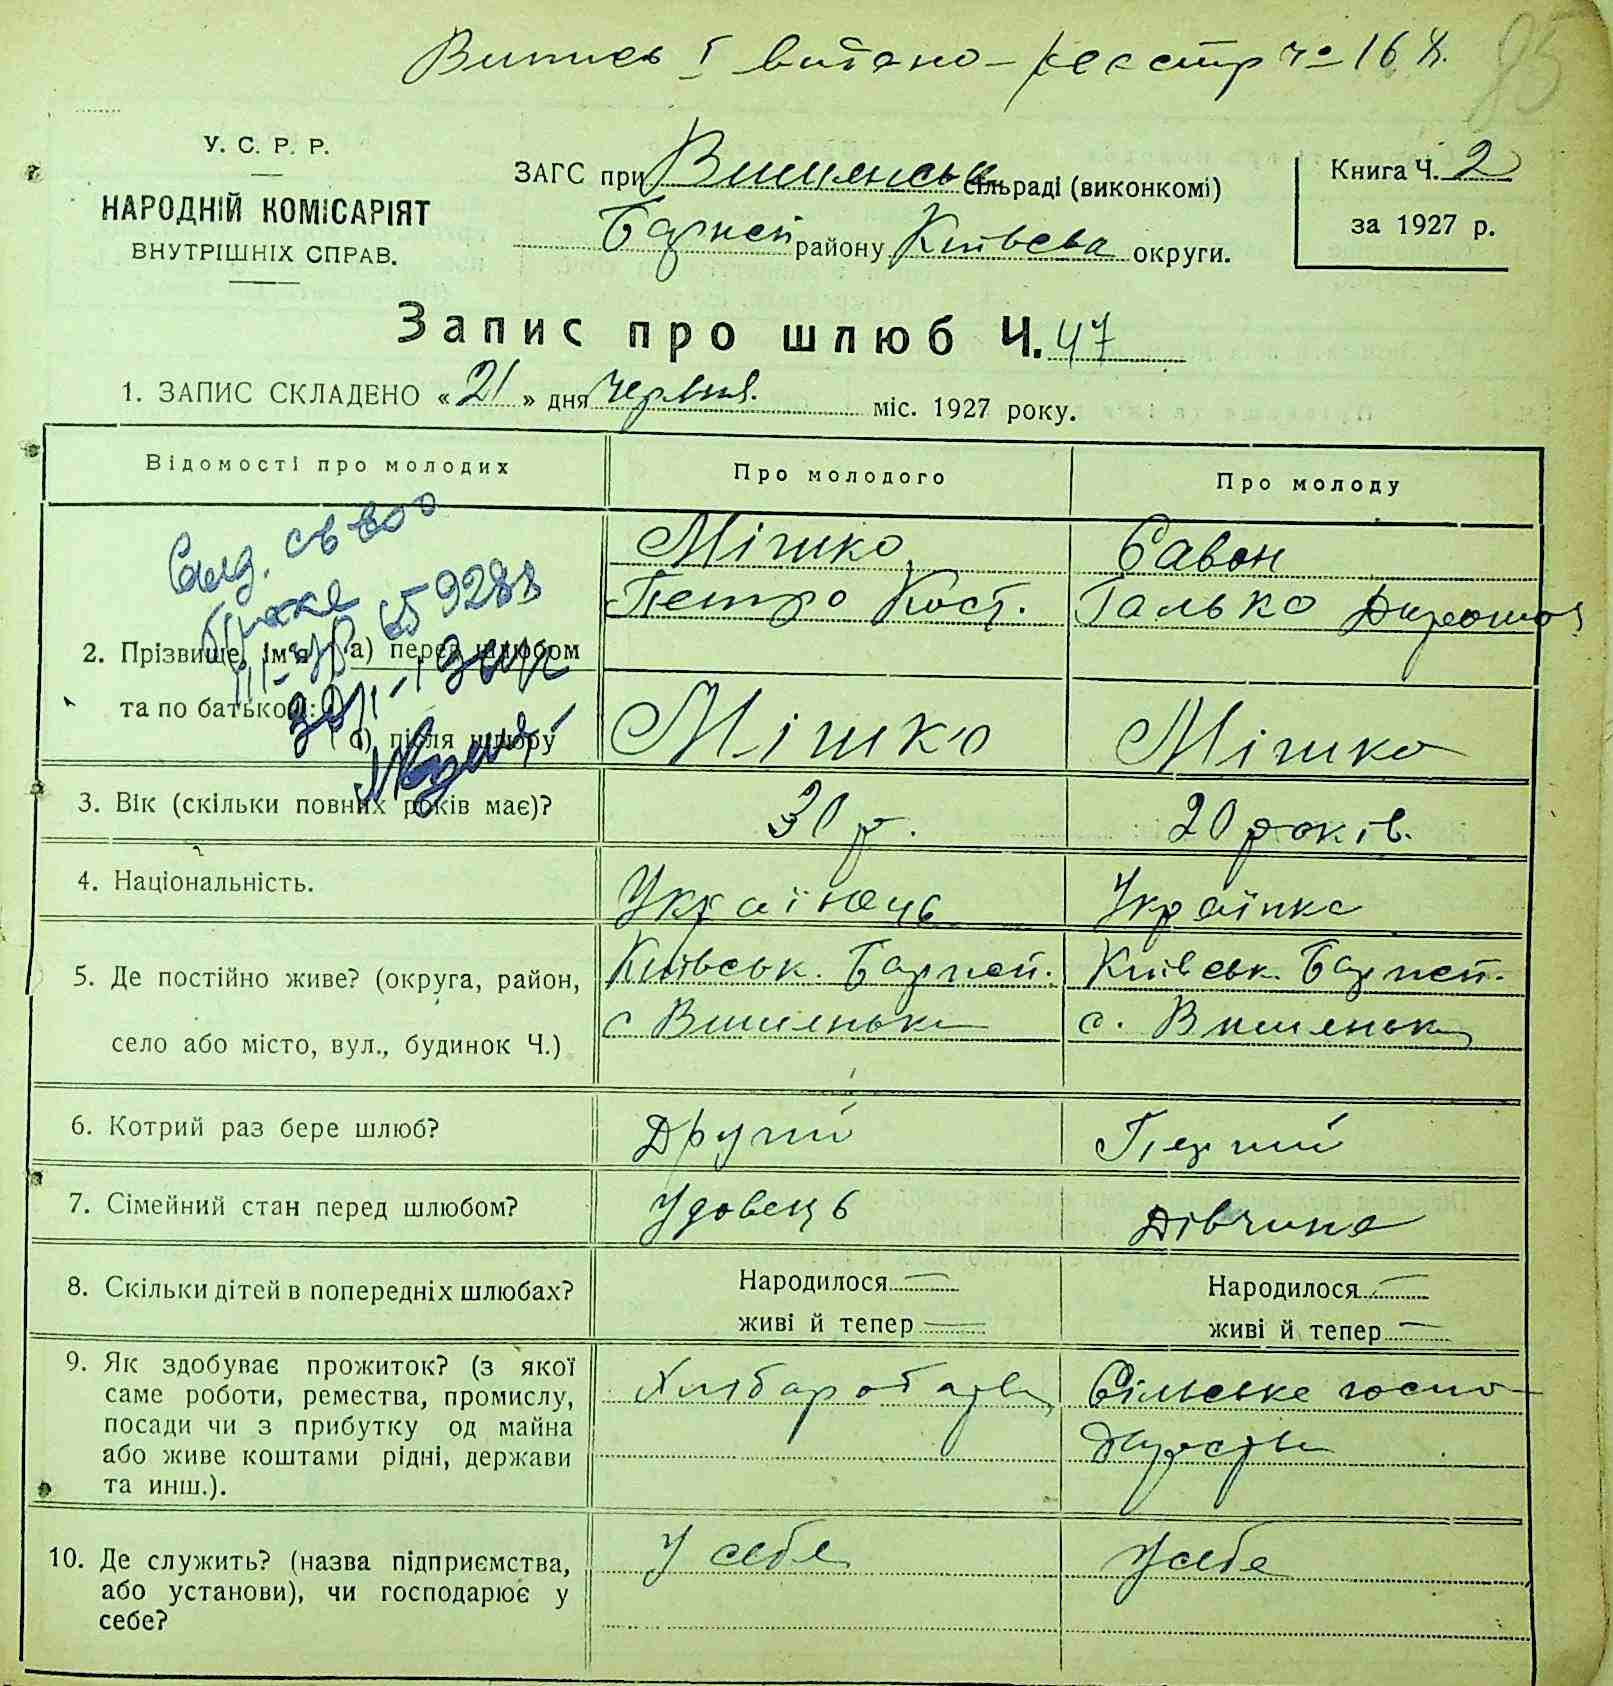 Випись I видано – реєстр чо 16
95
У. С. Р. Р.
НАРОДНІЙ КОМІСАРІЯТ
ВНУТРІШНІХ СПРАВ.
ЗАГС при Вишенськ сільраді (виконкомі)
району Київська округи.
Книга Ч. 2
за 1927 р.
Запис про шлюб Ч. 47
1. ЗАПИС СКЛАДЕНО «21» дня червня міс. 1927 року.
Відомості про молодих
Про молодого
Про молоду
2. Прізвище, ім'я
та по батькові:
а) перед шлюбом
б) після шлюбу
Мішко
Петро Кост.
Савон
Галько
Мішко
Мішко
3. Вік (скільки повних років має)?
30 р.
20 років.
4. Національність.
Українець
Українка
5. Де постійно живе? (округа, район,
село або місто, вул., будинок Ч.)
Київськ.
с Вишеньки
Київськ.
с. Вишеньки
6. Котрий раз бере шлюб?
Другий
Перший
7. Сімейний стан перед шлюбом?
Удовець
Дівчина
8. Скільки дітей в попередніх шлюбах?
Народилося —
живі й тепер —
Народилося —
живі й тепер —
9. Як здобуває прожиток? (з якої
саме роботи, ремества, промислу,
посади чи з прибутку од майна
або живе коштами рідні, держави
та инш.).
Сільське госпо-
10. Де служить? (назва підприємства,
або установи), чи господарює у
себе?
У себе
У себе